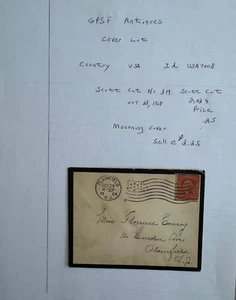 GPSF Antiques
Cover Lot
Country USA Id USA7008
Scott Cat No 319 Scott Cat
Oct 28, 1908
Price
.25
Mourning Cover
Sell @ $2.25
PLAINFIELD
N.J.
Miss Florence
Plainfield
N.J.